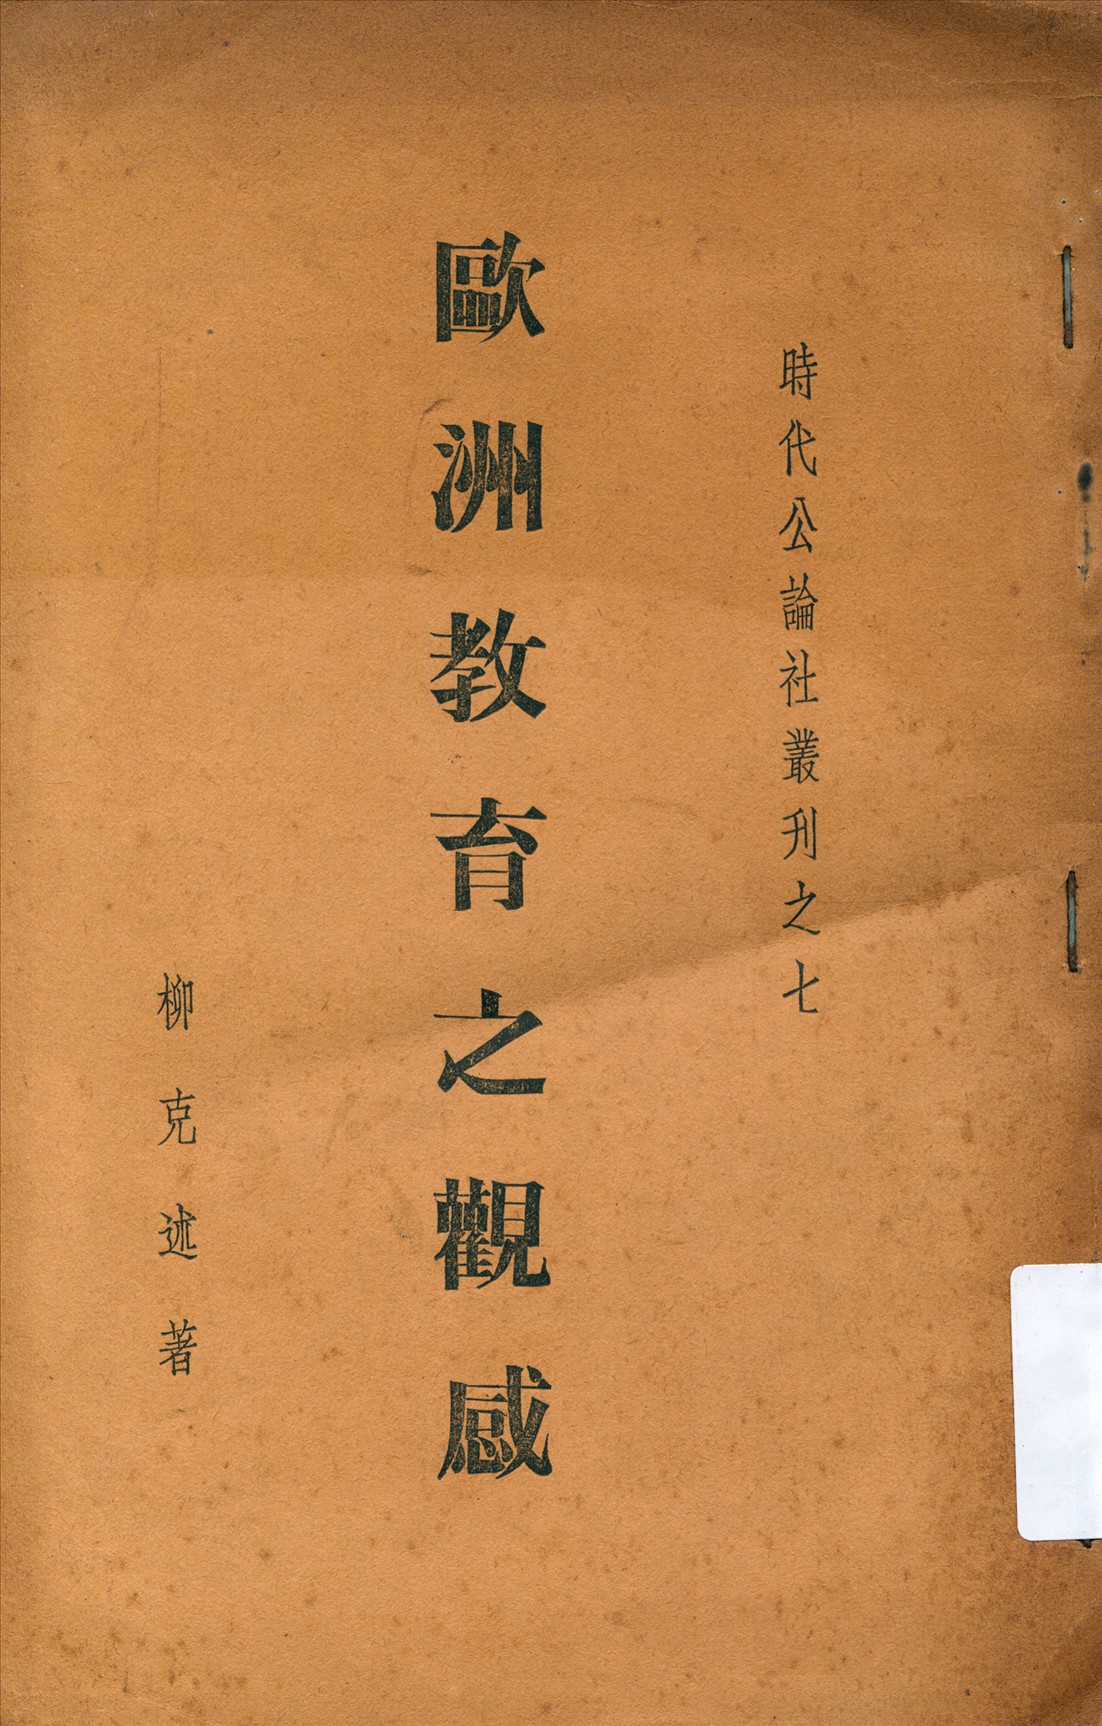 時代公論社叢刊之七
歐洲教育之觀感
柳克述著